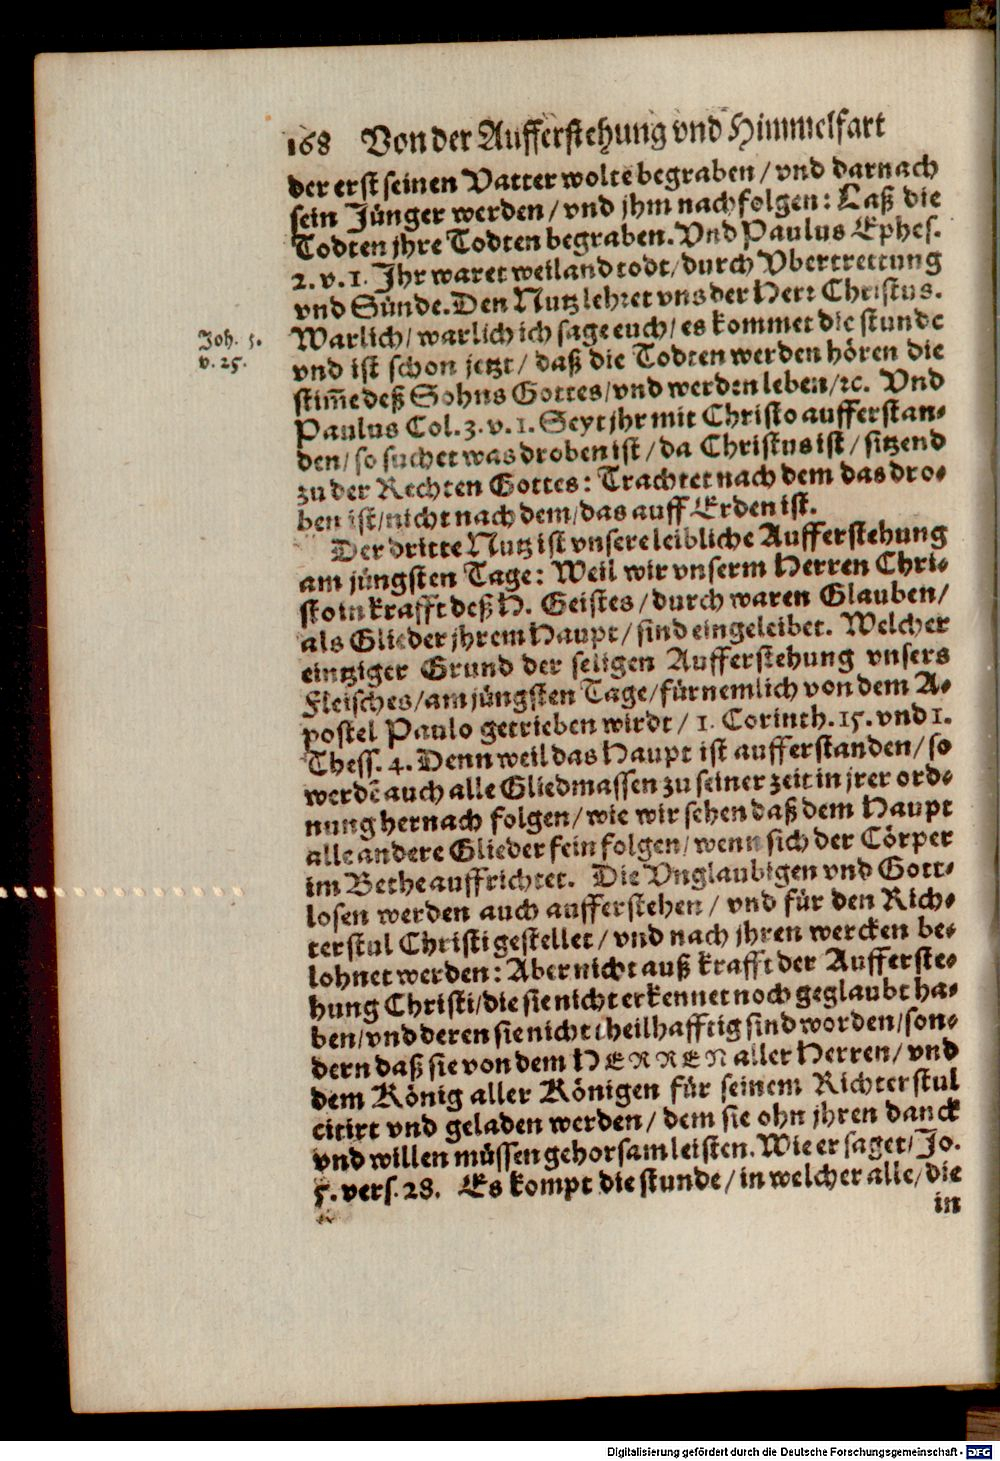 168 Von der Aufferstehung vnd Himmelfart
der erst seinen Vatter wolte begraben / vnd darnach
sein Jünger werden / vnd jhm nachfolgen: Laß die
Todten jhre Todten begraben. Vnd Paulus Ephes.
2. v. 1. Jhr waret weiland todt / durch Vbertrettung
vnd Sünde. Den Nutz lehret vns der Herr Christus.
Joh. 5.
v. 25.
Warlich / warlich ich sage euch / es kommet die stunde
vnd ist schon jetzt / daß die Todten werden hören die
stim̃e deß Sohns Gottes / vnd werden leben / ꝛc. Vnd
Paulus Col. 3. v. 1. Seyt jhr mit Christo aufferstan-
den / so suchet was droben ist / da Christus ist / sitzend
zu der Rechten Gottes: Trachtet nach dem das dro-
ben ist / nicht nach dem / das auff Erden ist.
Der dritte Nutz ist vnsere leibliche Aufferstehung
am jüngsten Tage: Weil wir vnserm Herren Chri-
sto in krafft deß H. Geistes / durch waren Glauben /
als Glieder jhrem Haupt / sind eingeleibet. Welcher
eintziger Grund der seligen Aufferstehung vnsers
Fleisches / am jüngsten Tage / fürnemlich von dem A-
postel Paulo getrieben wirdt / 1. Corinth. 15. vnd 1.
Thess. 4. Denn weil das Haupt ist aufferstanden / so
werdẽ auch alle Gliedmassen zu seiner zeit in jrer ord-
nung hernach folgen / wie wir sehen daß dem Haupt
alle andere Glieder fein folgen / wenn sich der Cörper
im Bethe auffrichtet. Die Vnglaubigen vnd Gott-
losen werden auch aufferstehen / vnd für den Rich-
terstul Christi gestellet / vnd nach jhren wercken be-
lohnet werden: Aber nicht auß krafft der Aufferste-
hung Christi / die sie nicht erkennet noch geglaubt ha-
ben / vnd deren sie nicht theilhafftig sind worden / son-
dern daß sie von dem HERREN aller Herren / vnd
dem König aller Königen für seinem Richterstul
citirt vnd geladen werden / dem sie ohn jhren danck
vnd willen müssen gehorsam leisten. Wie er saget / Jo.
5. vers. 28. Es kompt die stunde / in welcher alle / die
in
Digitalisierung gefördert durch die Deutsche Forschungsgemeinschaft - DFG